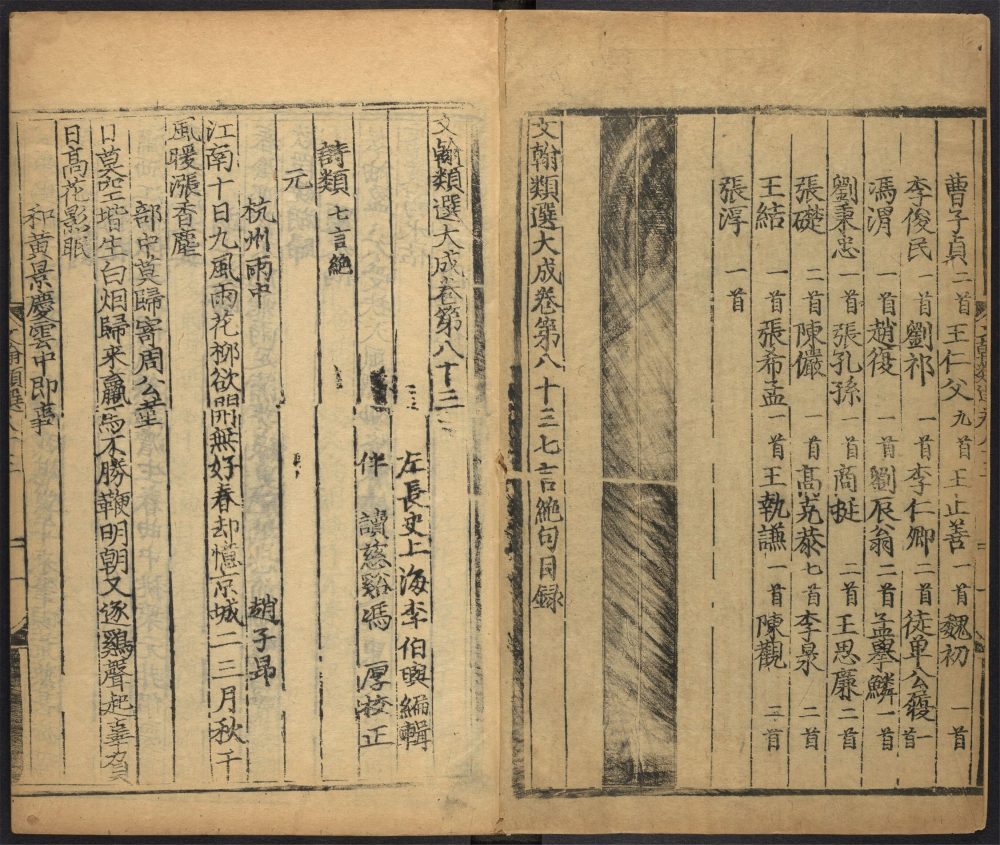 曹子貞二首王仁父九首王止善一首魏初一首
李俊民一首劉祁一首李仁卿二首徒單公履一首
馮渭一首趙復一首劉辰翁二首孟攀鱗一首
劉秉忠一首張孔孫一首商挺二首王思廉二首
張礎二首陳儼一首高克恭七首李泉二首
王結一首張希孟一首王執謙一首陳觀三首
張淳一首
文翰類選大成卷第八十三七言絶句目録
文翰類選大成卷第八十三
左長史上海李伯璵編輯
伴讀慈谿馮厚校正
詩類七言絶
元
杭州雨中趙子昻
江南十日九風雨花柳欲開無好春却憶京城二三月秋千
風暖漲香塵
部中莫歸寄周公堇
日莫空堦生白烟歸來羸馬不勝鞭明朝又逐鷄聲起辜負
日高花影眠
和黄景慶雲中即事